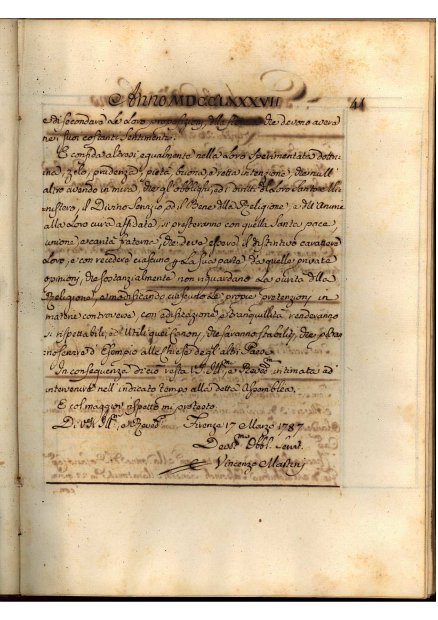 Anno MDCCLXXXVII
41
e di secondare le Loro proposizioni, che devono avere
nei suoi costanti Sentimenti.
E confidandosi egualmente nella Loro Sperimentata dottri
na, zelo, prudenza, pietà, buona, e retta intenzione, che null'
altro avendo in mira, che gl'obblighi, ed i diritti del Loro Santo Mi
nistero, il Divino Servizio, ed il Bene della Religione, e dell'Anime
alla Loro cura affidate, si presteranno con quella Santa pace,
unione, e carità fraterna, che deve essere il distintivo carattere
Loro, e con recedere ciascuno per La Sua parte da quelle private
opinioni, che sostanzialmente non riguardano La purità della
Religione, e modificando ciascuno Le proprie pretenzioni in
materie controverse, con edificazione, e tranquillità renderanno
si rispettabili, ed Utili quei Canoni, che saranno stabiliti, che potran
no servire d'Esempio alle Chiese degl'altri Paesi.
In conseguenza di ciò resta V.S. Ill.ma, e Rev.ma intimata ad
intervenire nell'indicato tempo alla detta Assemblea.
E col maggior rispetto mi protesto
Di V.S. Ill.ma, e Rev.ma Firenze 17 Marzo 1787
Dev.mo Obbl. Serv.
Vincenzo Martini